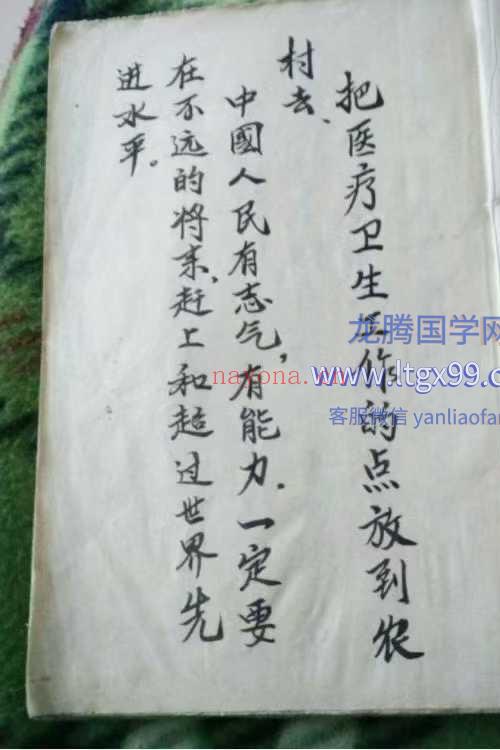 把医疗卫生工作的点放到农
村去、
中國人民有志气，有能力．一定要
在不远的将来、赶上和超过世界先
进水平。
龙腾国学网
www.ltgx99.c
客服微信 yanliaofa
nayona.cn